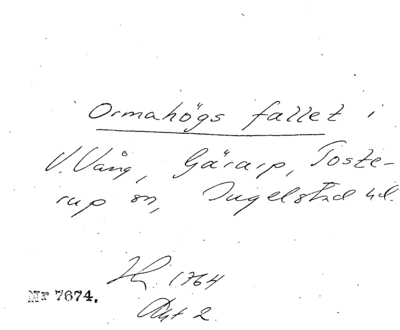 Ormahögs fallet i
V. Vång, Gärarp, Toste-
rup sn, Ingelstad hd.
1764
Nr 7674.
2